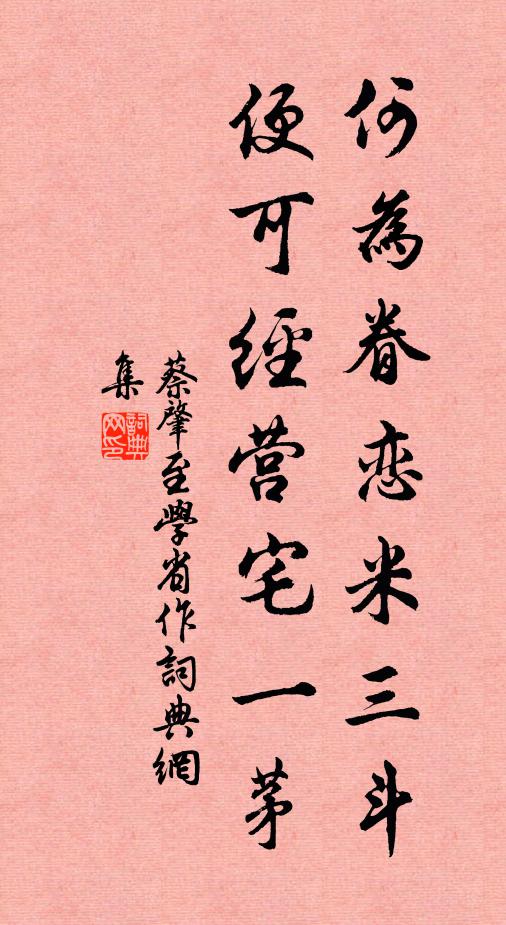 何為眷恋米三斗
便可經营宅一茅
蔡肇至學省作詞典網
集
詞典
网印